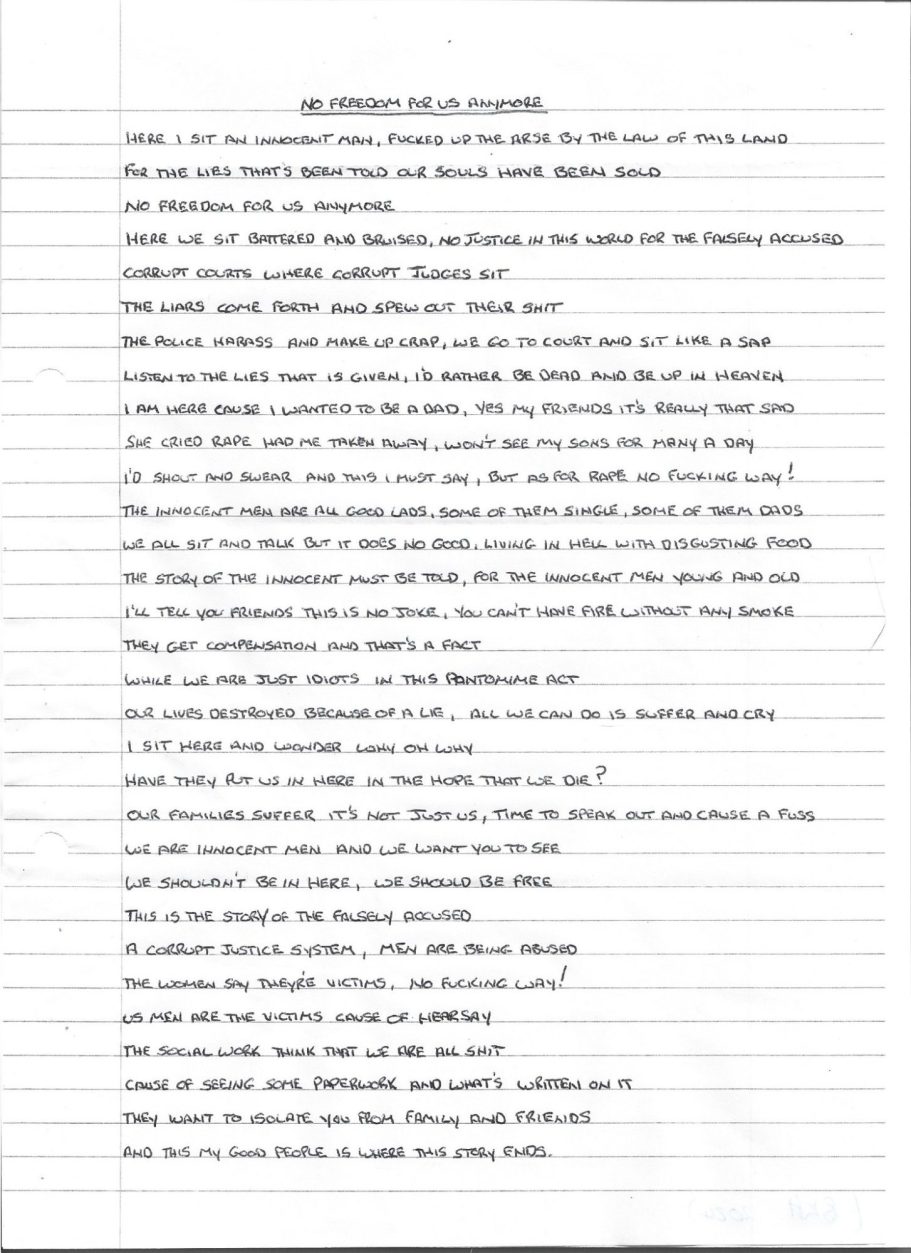 NO FREEDOM FOR US ANYMORE
HERE I SIT AN INNOCENT MAN, FUCKED UP THE ARSE BY THE LAW OF THIS LAND
FOR THE LIES THAT'S BEEN TOLD OUR SOULS HAVE BEEN SOLD
NO FREEDOM FOR US ANYMORE
HERE WE SIT BATTERED AND BRUISED, NO JUSTICE IN THIS WORLD FOR THE FALSELY ACCUSED
CORRUPT COURTS WHERE CORRUPT JUDGES SIT
THE LIARS COME FORTH AND SPEW OUT THEIR SHIT
THE POLICE HARASS AND MAKE UP CRAP, WE GO TO COURT AND SIT LIKE A SAP
LISTEN TO THE LIES THAT IS GIVEN, I'D RATHER BE DEAD AND BE UP IN HEAVEN
I AM HERE CAUSE I WANTED TO BE A DAD, YES MY FRIENDS IT'S REALLY THAT SAD
SHE CRIED RAPE HAD ME TAKEN AWAY, WON'T SEE MY SONS FOR MANY A DAY
I'D SHOUT AND SWEAR AND THIS I MUST SAY, BUT AS FOR RAPE NO FUCKING WAY!
THE INNOCENT MEN ARE ALL GOOD LADS, SOME OF THEM SINGLE, SOME OF THEM DADS
WE ALL SIT AND TALK BUT IT DOES NO GOOD, LIVING IN HELL WITH DISGUSTING FOOD
THE STORY OF THE INNOCENT MUST BE TOLD, FOR THE INNOCENT MEN YOUNG AND OLD
I'LL TELL YOU FRIENDS THIS IS NO JOKE, YOU CAN'T HAVE FIRE WITHOUT ANY SMOKE
THEY GET COMPENSATION AND THAT'S A FACT
WHILE WE ARE JUST IDIOTS IN THIS PANTOMIME ACT
OUR LIVES DESTROYED BECAUSE OF A LIE, ALL WE CAN DO IS SUFFER AND CRY
I SIT HERE AND WONDER WHY OH WHY
HAVE THEY PUT US IN HERE IN THE HOPE THAT WE DIE?
OUR FAMILIES SUFFER IT'S NOT JUST US, TIME TO SPEAK OUT AND CAUSE A FUSS
WE ARE INNOCENT MEN AND WE WANT YOU TO SEE
WE SHOULDN'T BE IN HERE, WE SHOULD BE FREE
THIS IS THE STORY OF THE FALSELY ACCUSED
A CORRUPT JUSTICE SYSTEM, MEN ARE BEING ABUSED
THE WOMEN SAY THEY'RE VICTIMS, NO FUCKING WAY!
US MEN ARE THE VICTIMS CAUSE OF HEARSAY
THE SOCIAL WORK THINK THAT WE ARE ALL SHIT
CAUSE OF SEEING SOME PAPERWORK AND WHAT'S WRITTEN ON IT
THEY WANT TO ISOLATE YOU FROM FAMILY AND FRIENDS
AND THIS MY GOOD PEOPLE IS WHERE THIS STORY ENDS.